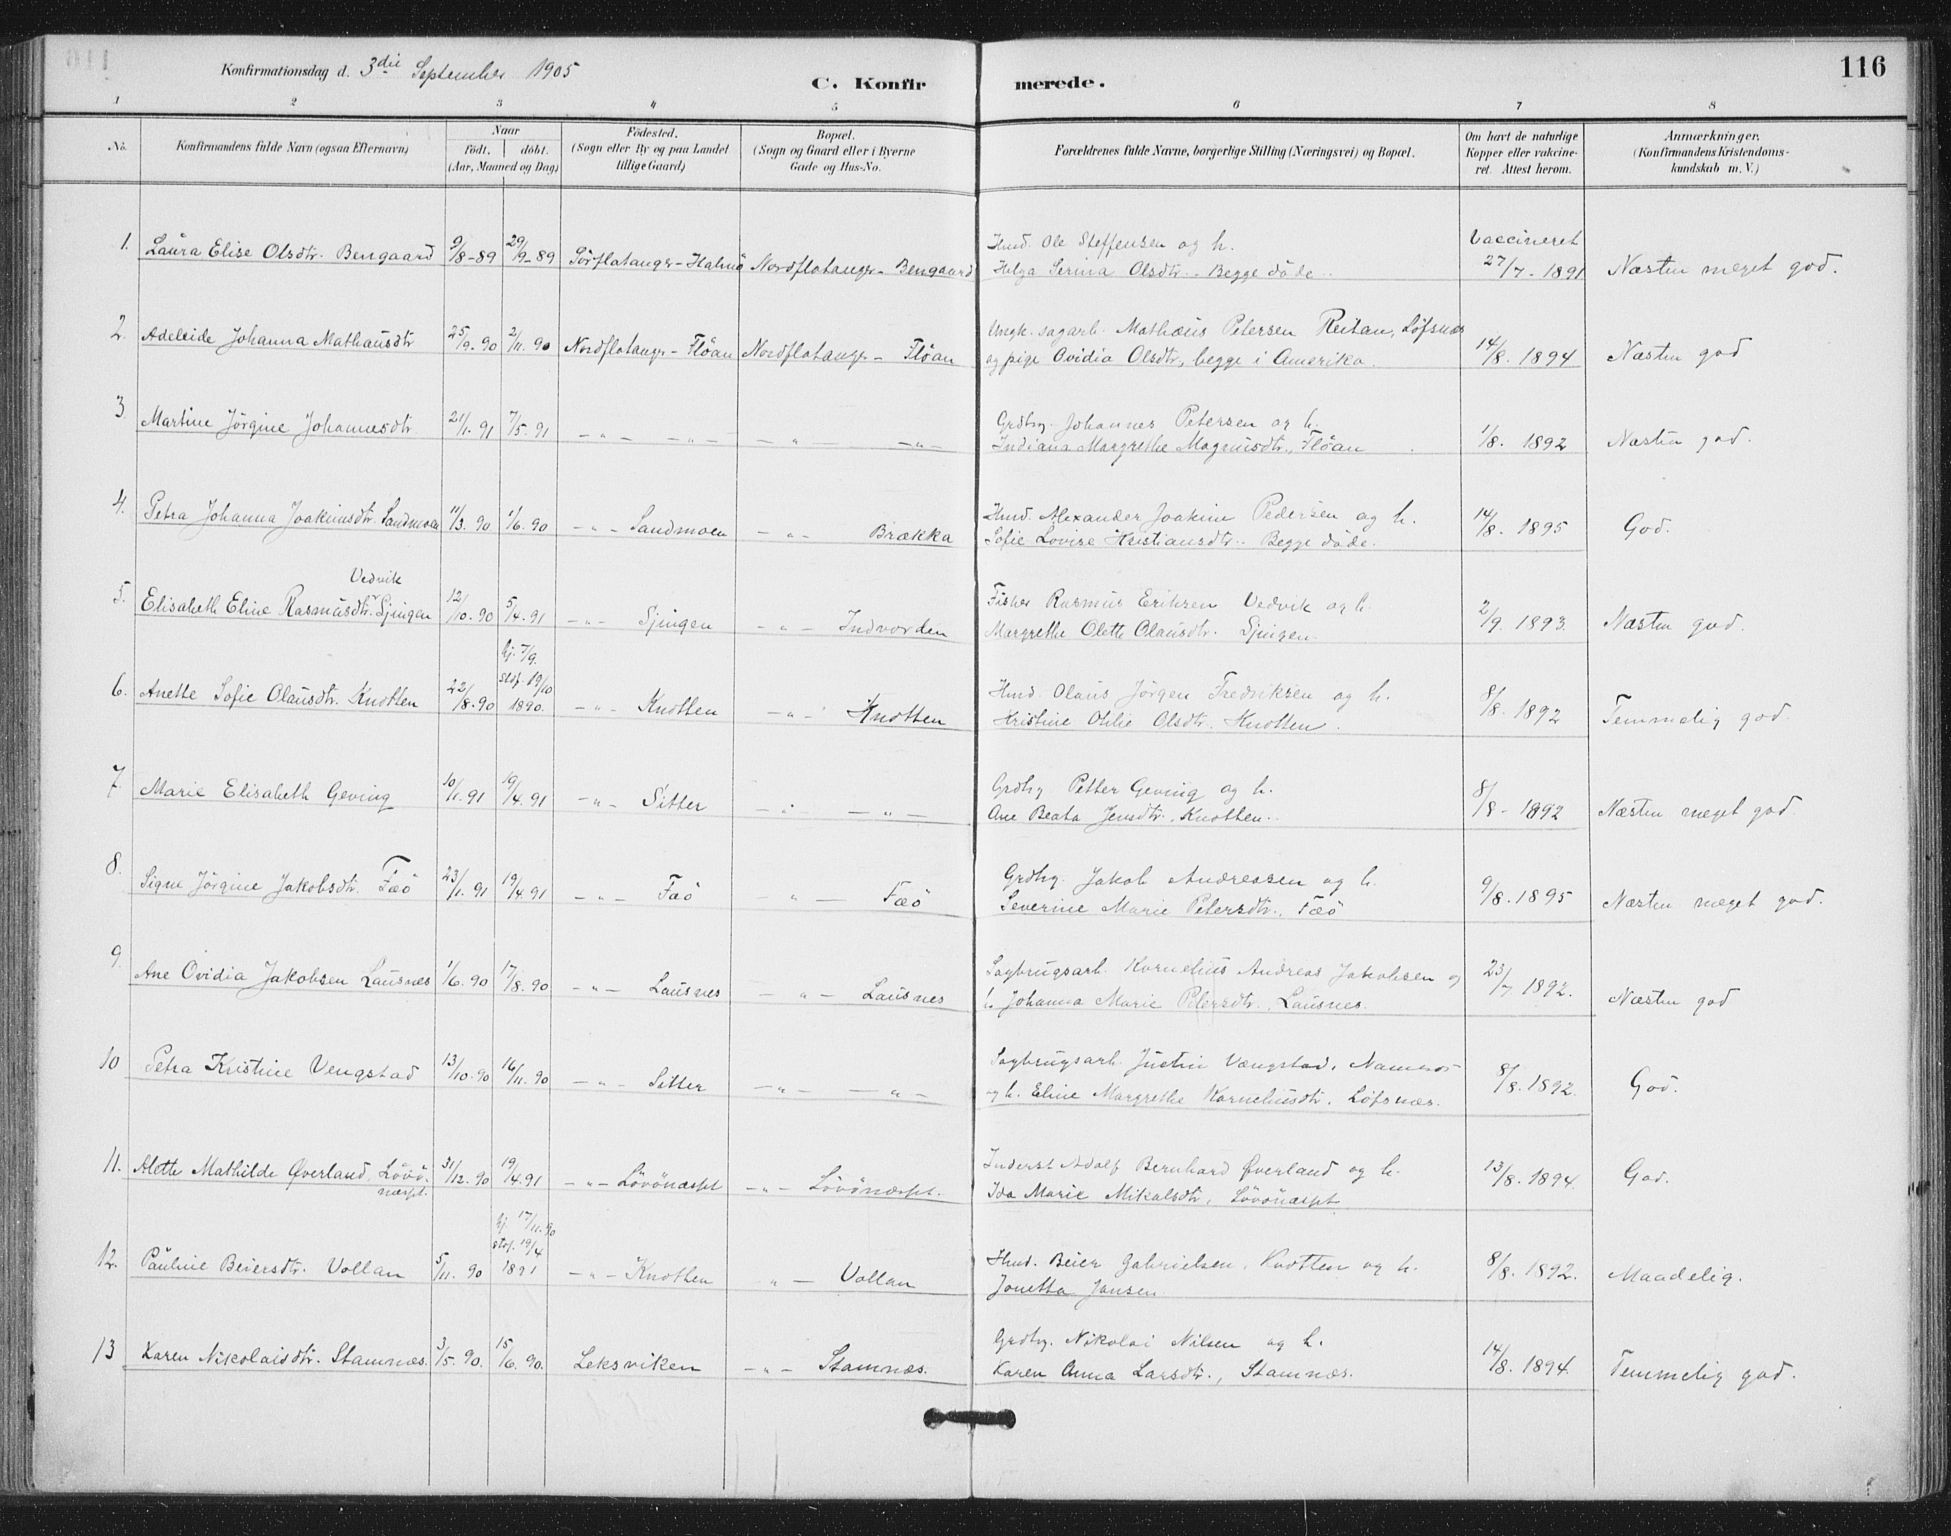 Konfirmationsdag d. 3die September 1905
C. Konfirmerede.
116
1 2 3 4 5 6 7 8
No. Konfirmandens fulde Navn (ogsaa Efternavn) Naar födt. döbt. (Aar, Maaned og Dag) Födested. (Sogn eller By og paa Landet tillige Gaard) Bopæl. (Sogn og Gaard eller i Byerne Gade og Hus-No. Forældrenes fulde Navne, borgerlige Stilling (Næringsvei) og Bopæl. Om havt de naturlige Kopper eller vakcineret. Attest herom. Anmærkninger. (Konfirmandens Kristendomskundskab m. V.)
1. Laura Elise Olsdtr. Bengaard 9/8-89 29/9-89 Sörflatanger-Halmö Nordflatanger-Bengaard Hmd. Ole Steffensen og h. Vaccineret
Helga Serina Olsdtr. - Begge döde. 27/7-1891 Næsten meget god.
2. Adeleide Johanna Mathausdtr 25/9.90 2/11.90 Nordflatanger-Flöan Nordflatanger-Flöan Ungk. sagarb. Mathæus Petersen Reitan, Löfsnæs
og pige Ovidia Olsdtr., begge i Amerika. 14/8.1894 Næsten god
3 Martine Jörgine Johannesdtr. 21/1.91 7/5.91 -"- -"- -"- -"- Grdbrg. Johannes Petersen og h.
Indiana Margrethe Magnusdtr., Flöan 1/8.1892 Næsten god.
4. Petra Johanna Joakimsdtr. Sandmoen 11/3.90 1/6.90 -"- Sandmoen -"- Brækka Hmd. Alexander Joakim Pedersen og h.
Sofie Lovise Kristiansdtr. Begge döde. 14/8.1895 God.
Vedvik
5. Elisabeth Eline Rasmusdtr. Sjingen 12/10.90 5/4.91 -"- Sjingen -"- Indvorden Fisker Rasmus Eriksen Vedvik og h.
Margrethe Olette Olausdtr. Sjingen. 2/9.1893. Næsten god.
6. Anette Sofie Olausdtr. Knotten 22/8.90 hj. 7/9. stdf. 19/10 1890. -"- Knotten -"- Knotten Hmd. Olaus Jörgen Fredriksen og h.
Kristine Otilie Olsdtr. Knotten. 8/8.1892 Temmelig god.
7. Marie Elisabeth Geving 10/1.91 19/4.91 -"- Sitter -"- -"- Grdbrg Petter Geving og h.
Ane Beata Jensdtr., Knotten. 8/8-1892 Næsten meget god.
8. Signe Jörgine Jakobsdtr. Fæö 23/1.91 19/4.91 -"- Fæö -"- Fæö Grdbrg. Jakob Andreasen og h.
Severine Marie Petersdtr., Fæö 9/8.1895 Næsten meget god.
9. Ane Ovidia Jakobsen Lausnes 1/6.90 17/8.90 -"- Lausnes -"- Lausnes Sagbrugsarb. Kornelius Andreas Jakobsen og
h. Johanna Marie Petersdtr., Lausnes. 23/7 1892. Næsten god
10 Petra Kristine Vengstad 13/10.90 16/11.90 -"- Sitter -"- -"- Sagbrugsarb. Justin Vængstad, Namsos
og h. Eline Margrethe Korneliusdtr. Löfsnæs. 8/8.1892. God.
11. Alette Mathilde Øverland, Lövönæspt. 31/12.90 19/4.91 -"- Lövönæspt -"- Lövönæspt. Inderst Adolf Bernhard Øverland og h.
Ida Marie Mikalsdtr., Lövönæspt. 13/8.1894. God.
12. Pauline Beiersdtr. Vollan 5/11.90 hj. 17/11.90 stdf. 19/4 1891 -"- Knotten "- Vollan Hmd. Beier Gabrielsen, Knotten og h.
Jonetta Jansen 8/8.1892. Maadelig.
13 Karen Nikolaisdtr. Stamnæs. 3/5.90. 15/6.90. Leksviken -"- Stamnæs. Grdbrg. Nikolai Nilsen og h.
Karen Anna Larsdtr., Stamnæs. 14/8.1894. Temmelig god.